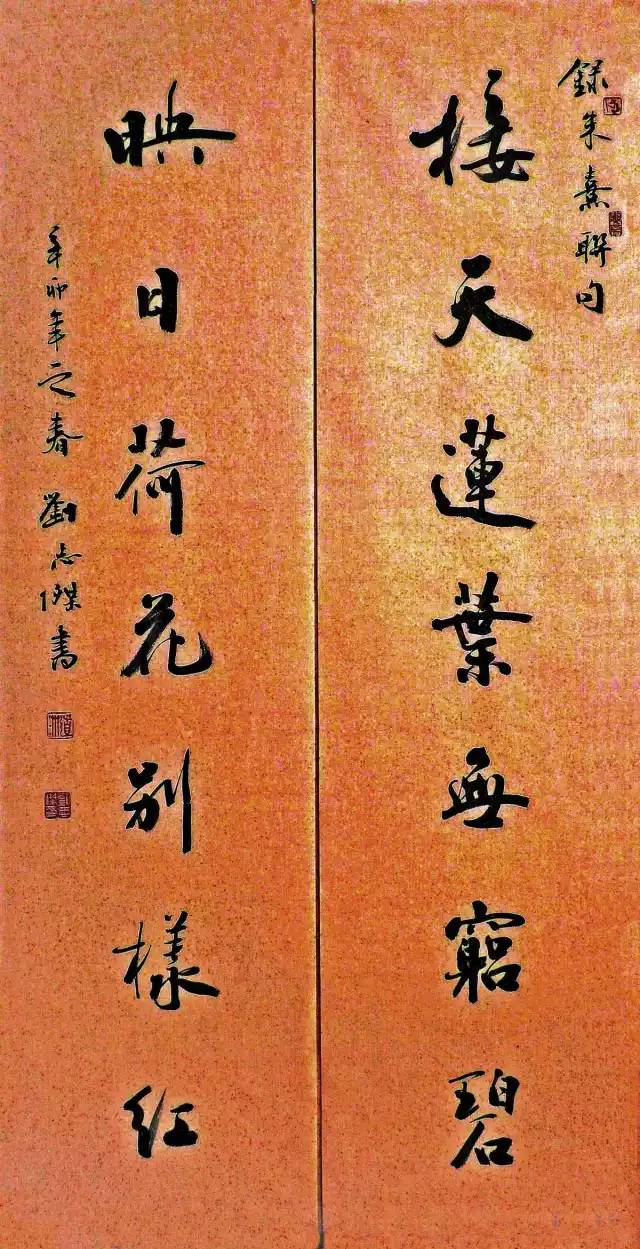 錄朱熹聯句
接天蓮葉無窮碧
映日荷花别樣紅
辛卯年之春 劉志傑書